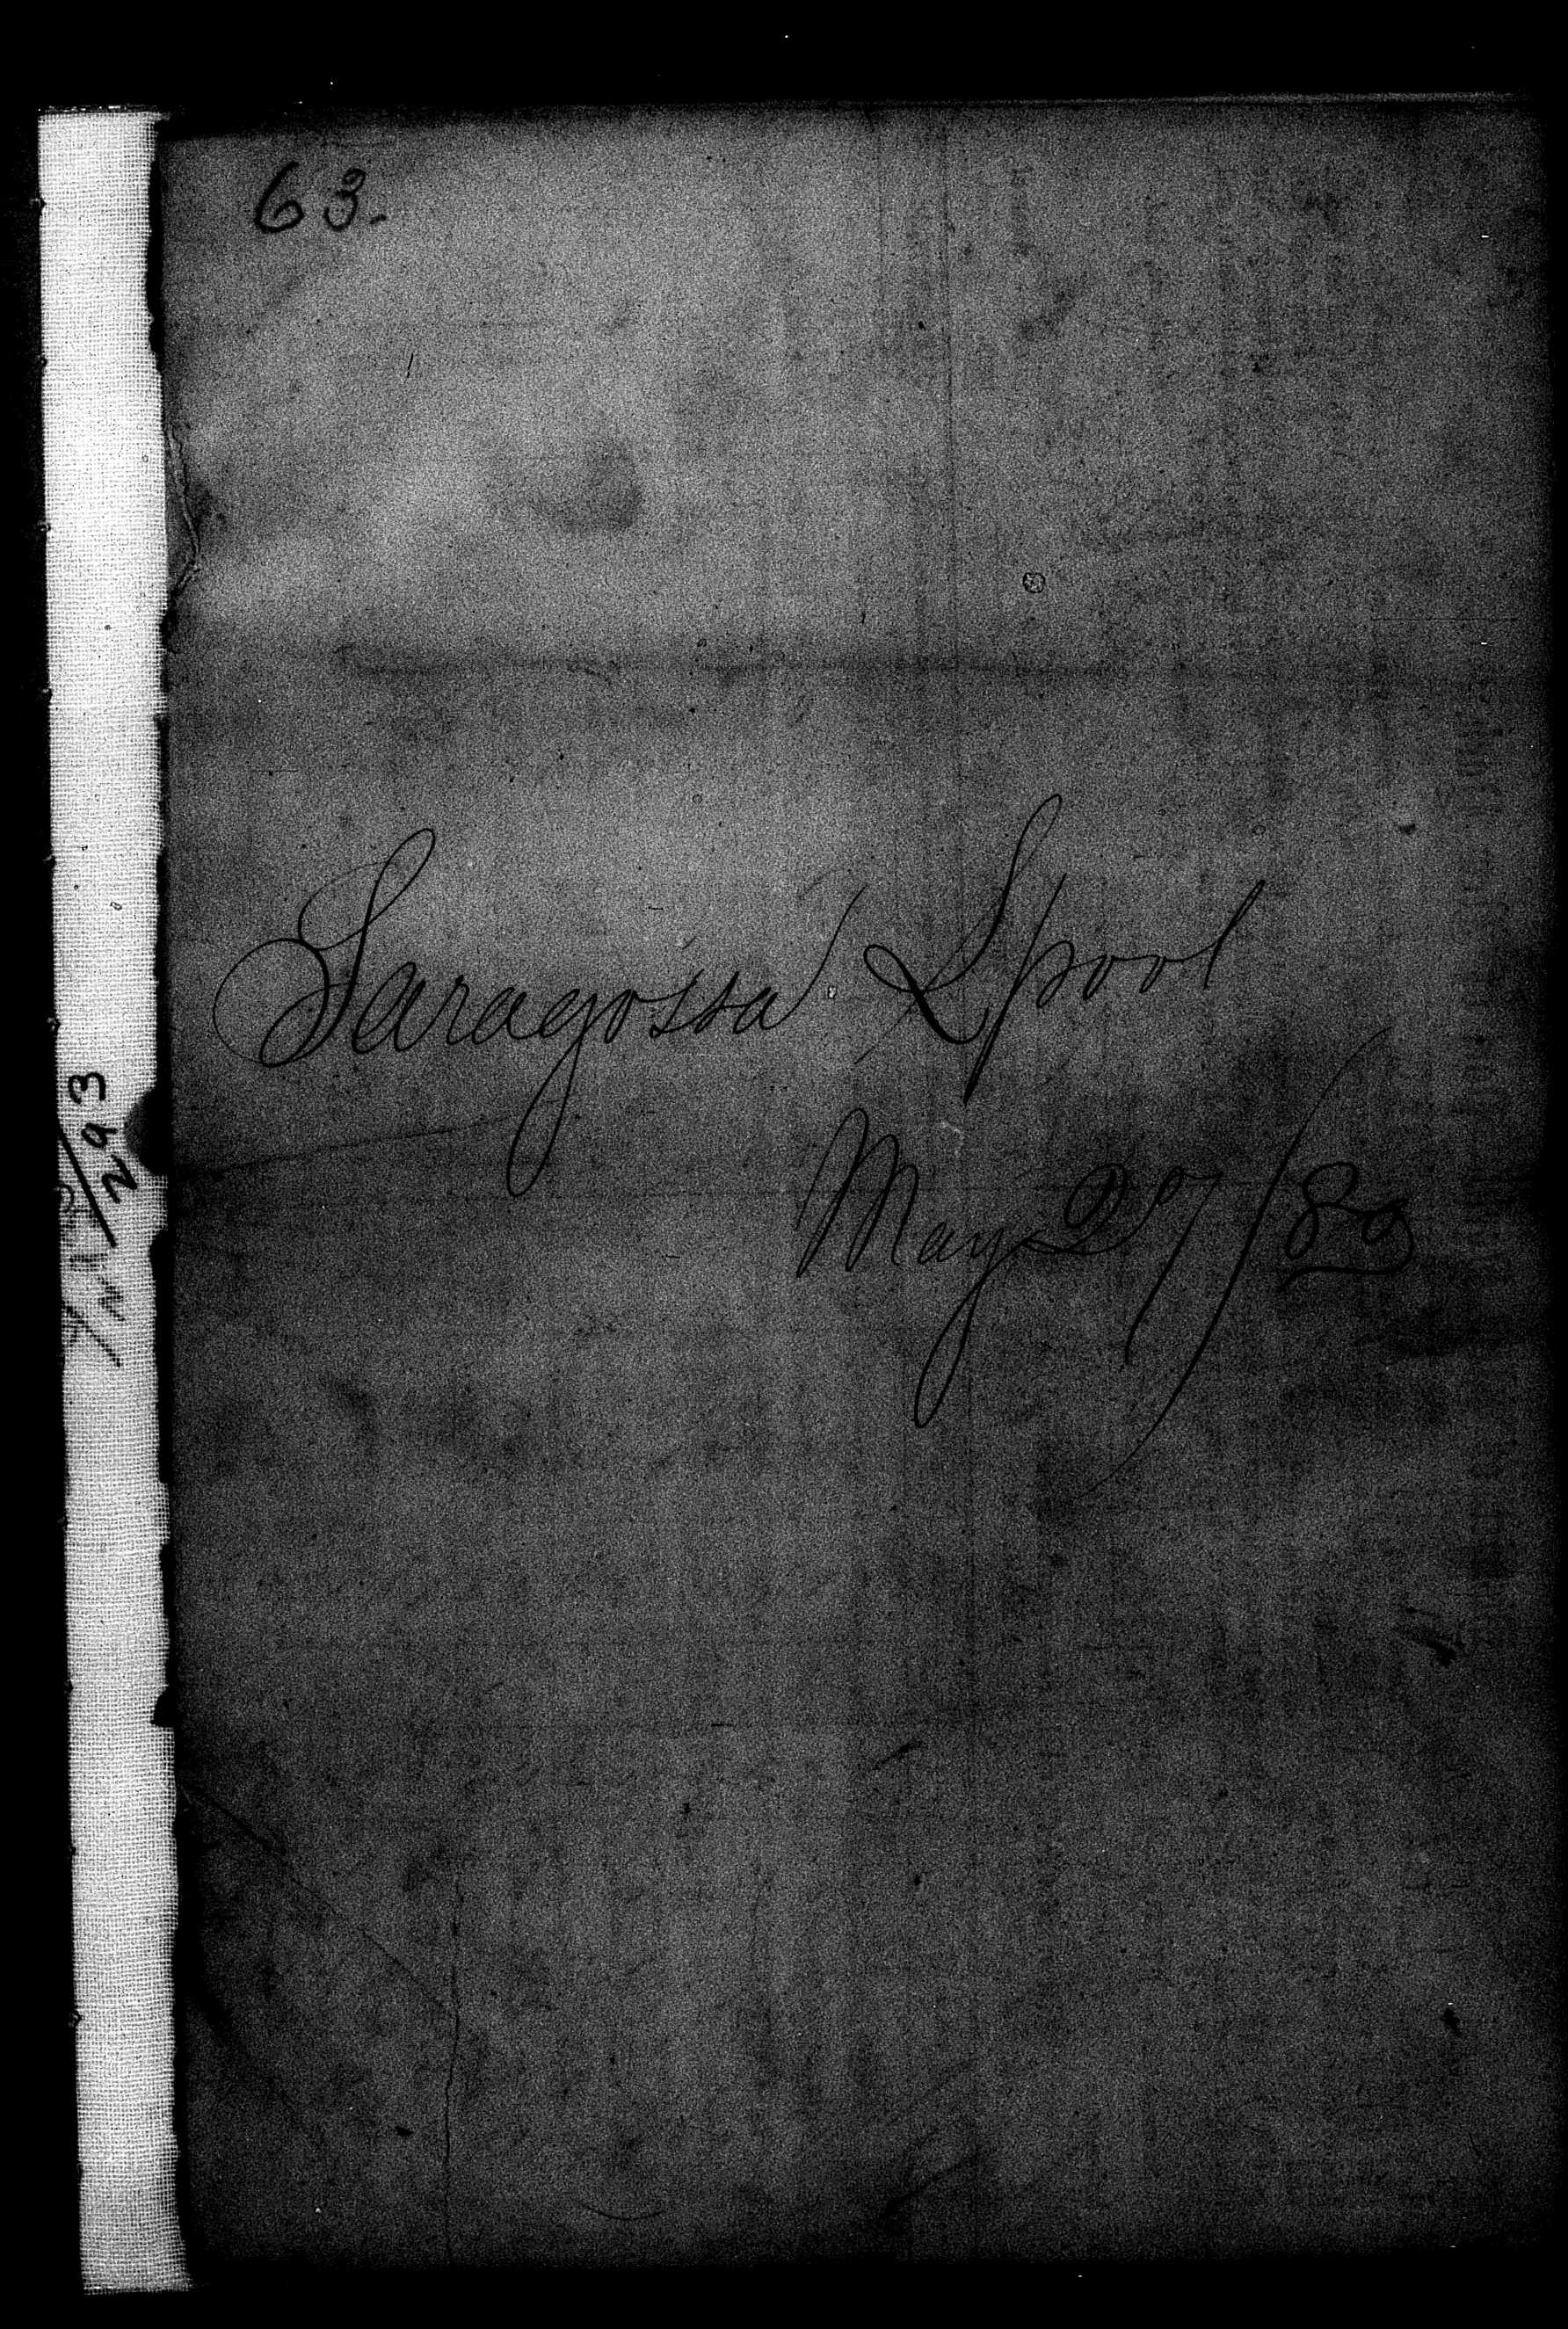 63.
Saragossa Lpool
May 27/89
293